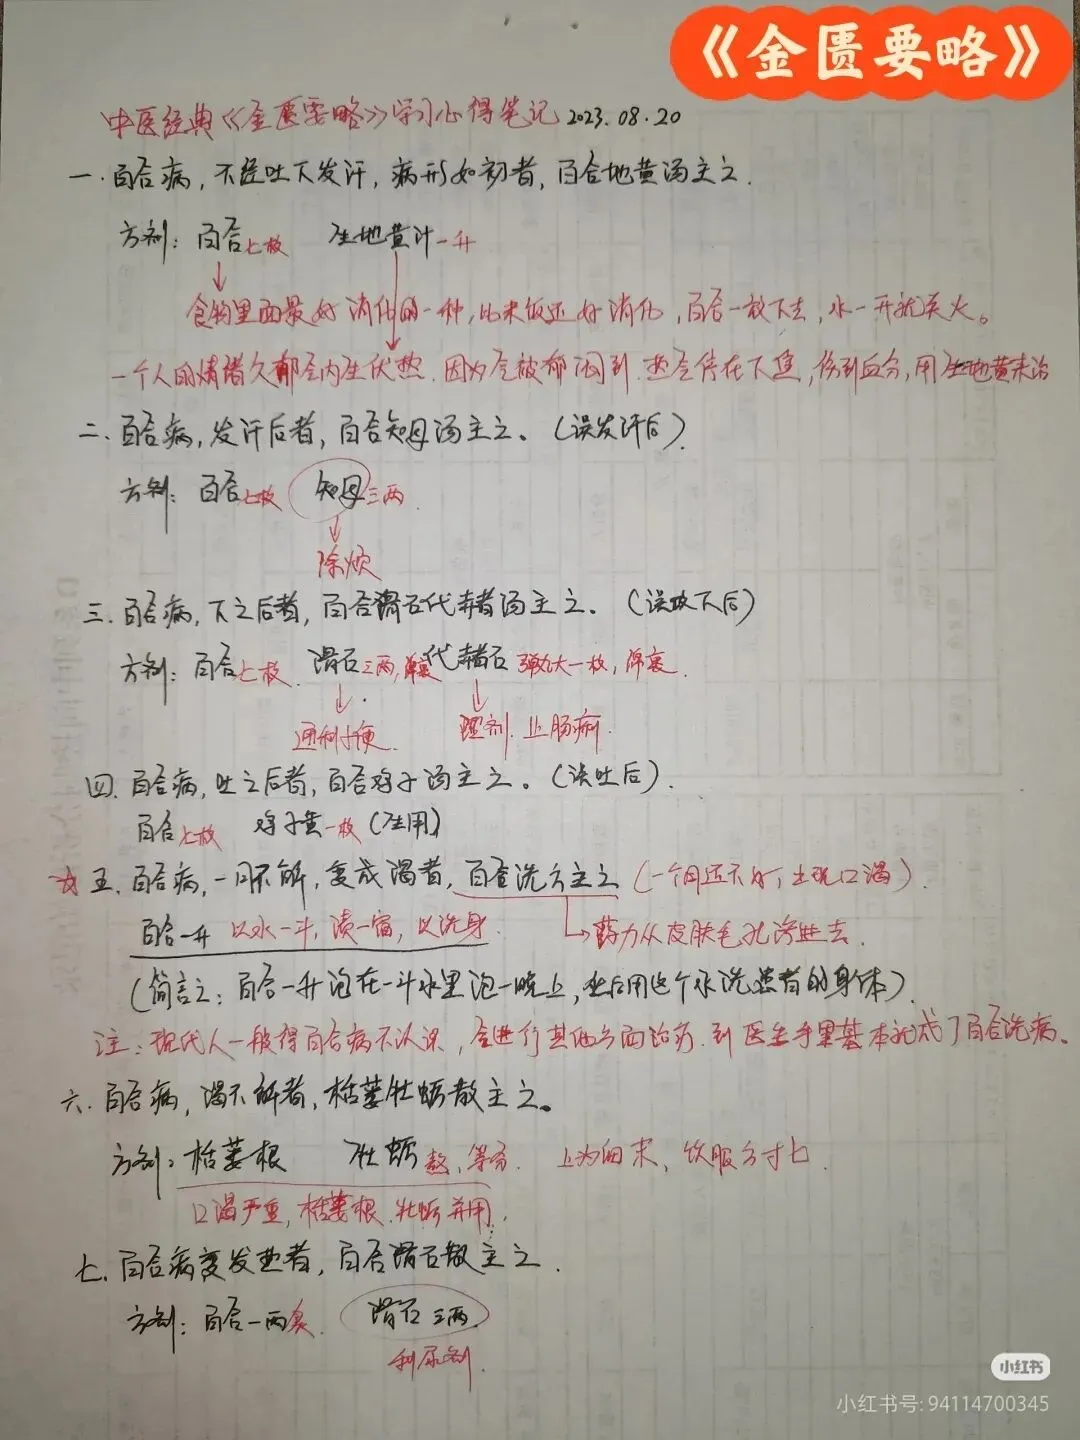 《金匮要略》
中医经典《金匮要略》学习心得笔记 2023.08.20
一.百合病,不经吐下发汗,病形如初者,百合地黄汤主之.
方剂:百合七枚 生地黄汁一升
食物里面最好消化的一种,比米饭还好消化,百合一放下去,水一开就关火。
一个人的情绪久郁会内生伏热.因为会被郁闷到.热会停在下焦,伤到血分,用生地黄来治
二.百合病,发汗后者,百合知母汤主之。(误发汗后).
方剂:百合七枚 知母三两
除烦
三.百合病,下之后者,百合滑石代赭汤主之。(误攻下后)
方剂:百合七枚. 滑石三两,绵裹 代赭石 弹丸大一枚,绵裹.
通利小便. 涩剂.止肠痢.
四.百合病,吐之后者,百合鸡子汤主之。(误吐后).
百合七枚 鸡子黄一枚(生用)
☆五.百合病,一月不解,变成渴者,百合洗方主之(一个月还不好,出现口渴).
百合一升 以水一斗,渍一宿,以洗身. 药力从皮肤毛孔渗进去.
(简言之:百合一升泡在一斗水里泡一晚上,然后用这个水洗患者的身体).
注:现代人一般得百合病不认识,会进行其他方面治疗.到医生手里基本就成了百合洗病。
六.百合病,渴不解者,栝蒌牡蛎散主之。
方剂:栝蒌根 牡蛎熬,等分. 上为细末,饮服方寸匕.
口渴严重,栝蒌根.牡蛎并用.
七.百合病变发热者,百合滑石散主之.
方剂:百合一两炙. 滑石三两.
利尿剂.
小红书
小红书号:94114700345